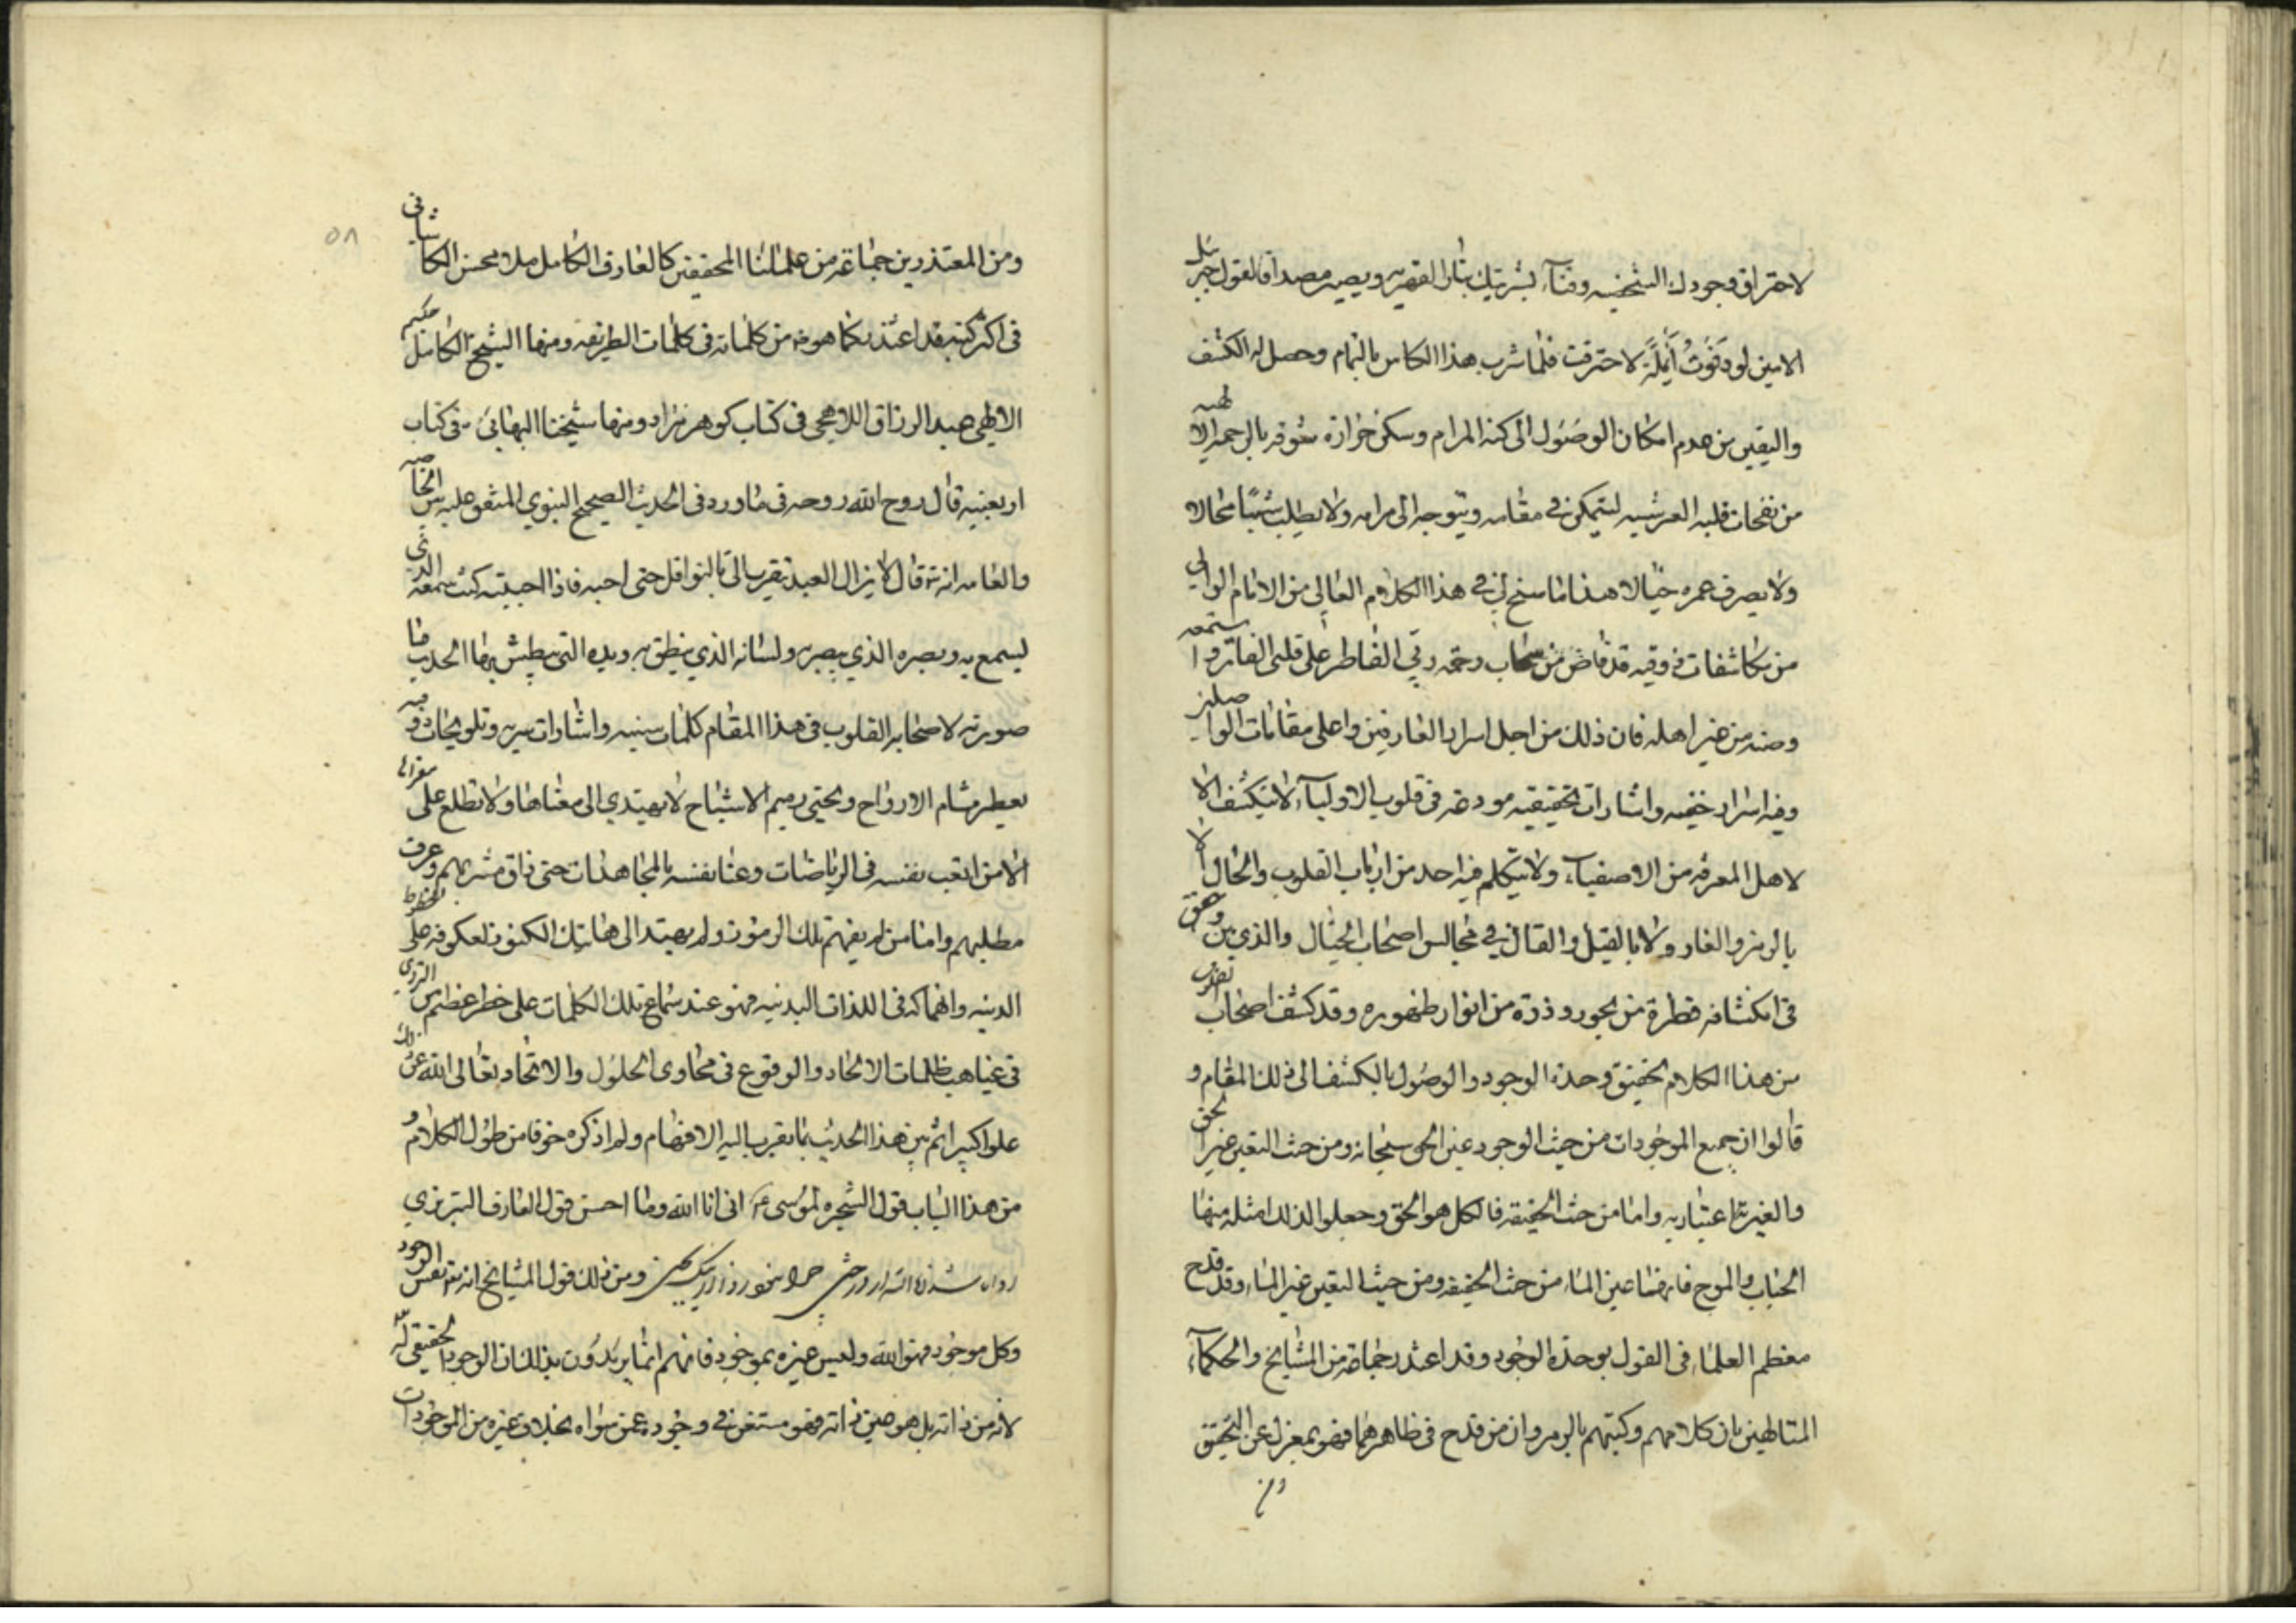 لاحتراق وجودك الشخصيه وفناء بشريتك بنار القهريه ويصير مصداقا لقول جبرئيل
الامين لو دَنَوتُ اَنمِلَةً لاحترقت فلما شرب هذا الكاس بالتمام وحصل له الكشف
واليقين من عدم امكان الوصول الى كنه المرام وسكن حرارة شوقه بالرحمه الالهيه
من نفحات قلبه العرشيه ليتمكن في مقامه ويتوجه الى مرامه ولا يطلب شيئا محالا
ولا يصرف عمره خيالا هذا ما سنح لي في هذا الكلام العالي من الامام الوالي
من مكاشفات ذوقيه قد فاض من سحاب رحمة ربي الفاطر على قلبي الفاتر واستمعه
وصنه من غير اهله فان ذلك من اجل اسرار العارفين واعلى مقامات الواصلين
وفيه اسرار خفيه واشارات تحقيقيه مودعه في قلوب الاولياء لا ينكشف الا
لاهل المعرفه من الاصفياء ولا يتكلم فيه احد من ارباب القلوب والحال الا
بالرمز والغاز ولا بالقيل والقال في مجالس اصحاب الخيال والذي بين وحقق
في انكشافه قطرة من بحور وذرة من انوار ظهوره وقد كشف اصحاب التصوف
من هذا الكلام تحقيق وحدة الوجود والوصول بالكشف الى ذلك المقام و
قالوا ان جميع الموجودات من حيث الوجود عين الحق سبحانه ومن حيث التعين غير الحق
والغيريه اعتباريه واما من حيث الحقيقه فالكل هو الحق وجعلوا لذلك امثله منها
الحباب والموج فانهما عين الماء من حيث الحقيقه ومن حيث التعين غير الماء وقد قدح
معظم العلماء في القول بوحدة الوجود وقد اعتذر جماعة من المشايخ والحكماء
المتالهين بان كلامهم وكتبهم بالرمز وان من قدح في ظاهرهما فهو بمعزل عن التحقيق
ومن
٥٨
ومن المعتذرين جماعة من علمائنا المحققين كالعارف الكامل ملا محسن الكاشاني
في اكثر كتبه قد اعتذر كما هو من كلماته في كلمات الطريفه ومنها الشيخ الكامل حكيم
الالهي عبد الرزاق اللاهجي في كتاب كوهر مراد ومنها شيخنا البهائي في كتاب
اربعينه قال روح الله روحه في ما ورد في الحديث الصحيح النبوي المتفق عليه بين الخاصه
والعامه انه قال لا يزال العبد يتقرب الى بالنوافل حتى احبه فاذا احببته كنت سمعه الذي
يسمع به وبصره الذي يبصر به ولسانه الذي ينطق به ويده التي يبطش بها الحديث ما
صورته لاصحاب القلوب في هذا المقام كلمات سنيه واشارات سريه وتلويحات ذوقيه
يعطر مشام الارواح ويحيى رميم الاشباح لا يهتدي الى معناها ولا تطلع على مغزاها
الا من اتعب نفسه في الرياضات وعنا نفسه بالمجاهدات حتى ذاق مشربهم وعرف
مطلبهم واما من لم يفهم تلك الرموز ولم يهتد الى هاتيك الكنوز لعكوفه على الحظوظ
الدنيه وانهماكه في اللذات البدنيه فهو عند سماع تلك الكلمات على خطر عظيم من التردي
في غياهب ظلمات الالحاد والوقوع في مهاوي الحلول والاتحاد تعالى الله عن ذلك
علوا كبيرا ثم بين هذا الحديث بما يقرب اليه الافهام ولم اذكره خوفا من طول الكلام و
من هذا الباب قول الشجره لموسى انى انا الله وما احسن قول العارف التبريزي
روا باشد انا الله از درختى چرا نبود روا از نيك بختى ومن ذلك قول المشايخ انه نفس الوجود
وكل موجود فهو الله وليس غيره بموجود فانهم انما يريدون بذلك ان الوجود الحقيقي له
لانه من ذاته بل هو عين ذاته فهو مستغن في وجوده عمن سواه بخلاف غيره من الموجودات